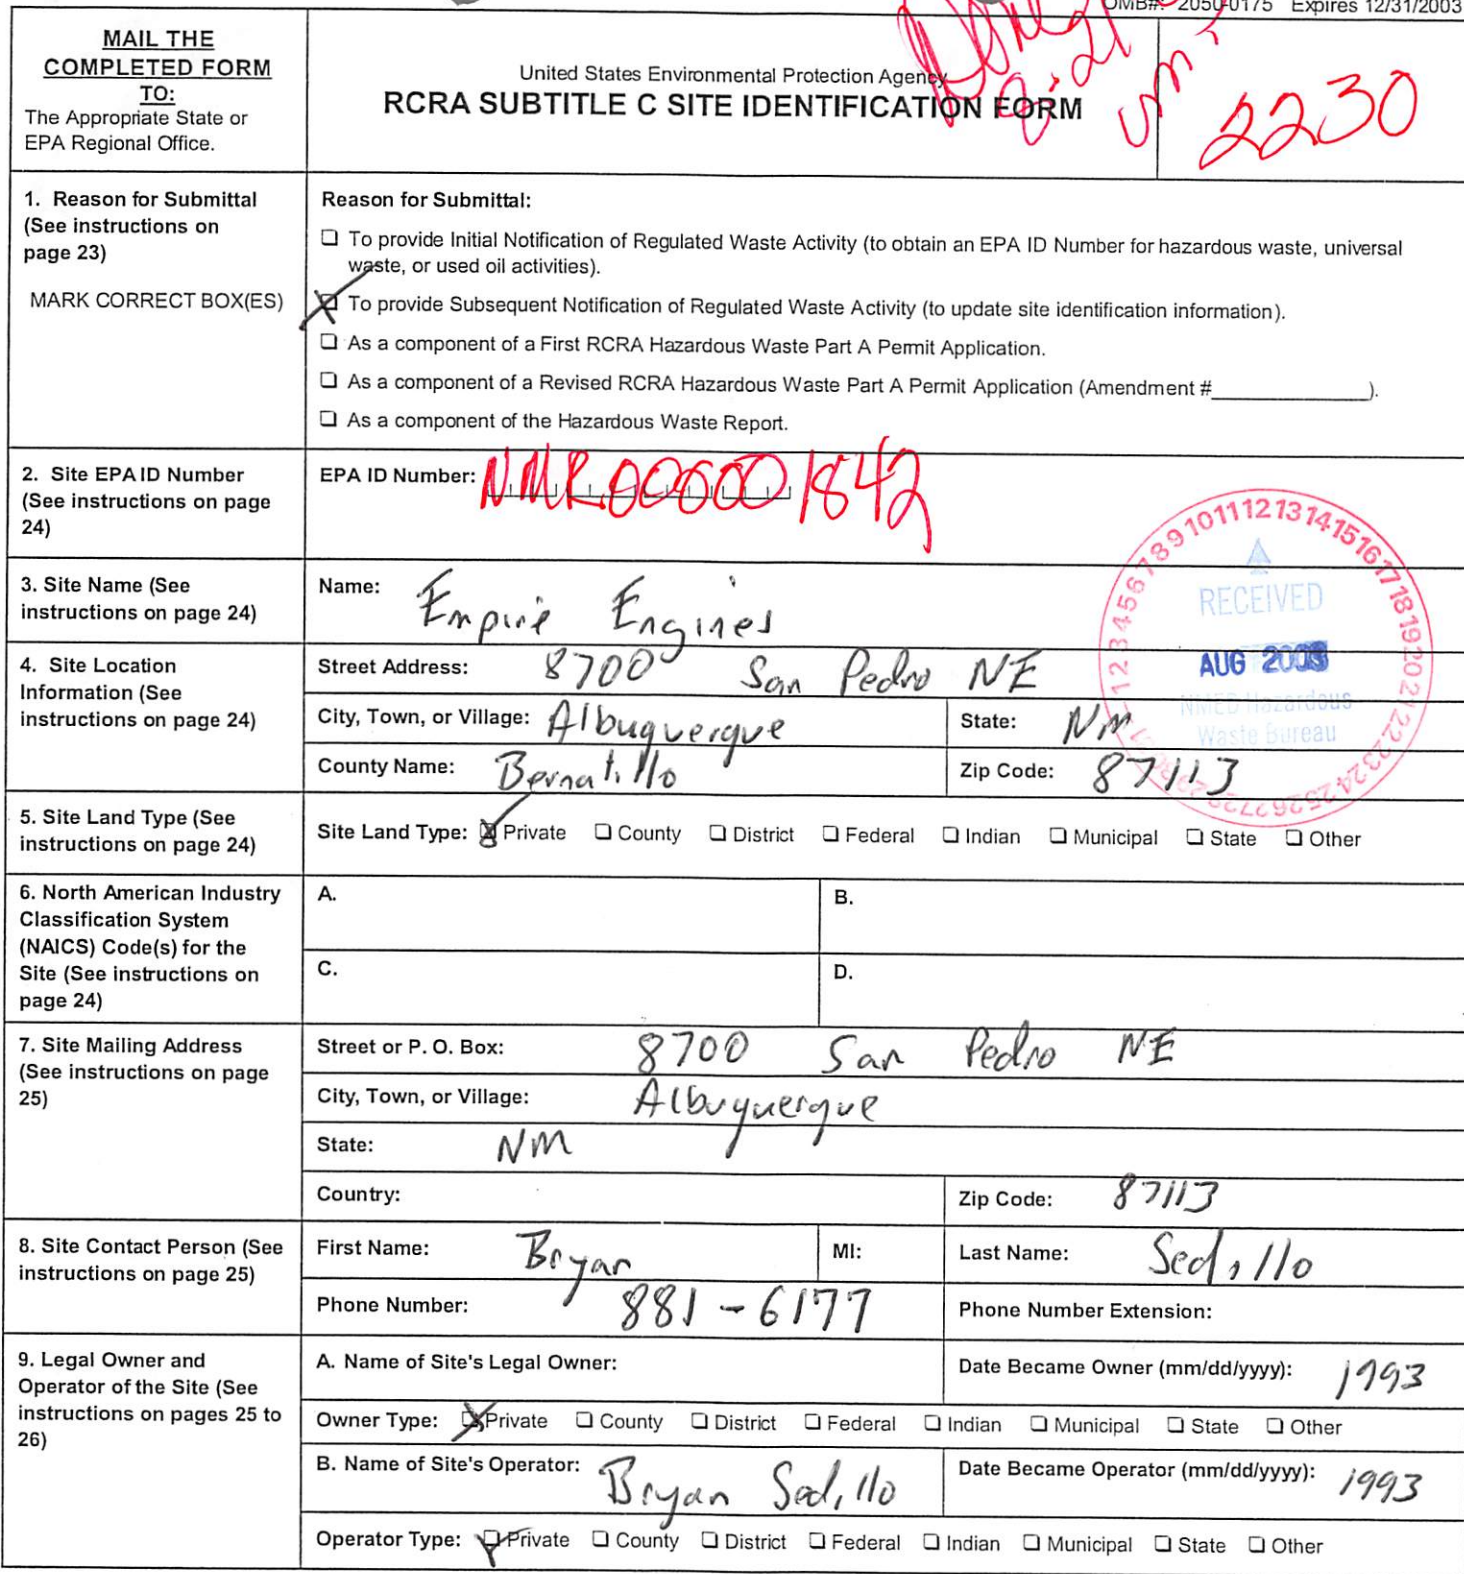 OMB#: 2050-0175 Expires 12/31/2003
MAIL THE
COMPLETED FORM
TO:
The Appropriate State or
EPA Regional Office.
United States Environmental Protection Agency
RCRA SUBTITLE C SITE IDENTIFICATION FORM
2230
1. Reason for Submittal
(See instructions on
page 23)
MARK CORRECT BOX(ES)
Reason for Submittal:
❑ To provide Initial Notification of Regulated Waste Activity (to obtain an EPA ID Number for hazardous waste, universal
waste, or used oil activities).
☒ To provide Subsequent Notification of Regulated Waste Activity (to update site identification information).
❑ As a component of a First RCRA Hazardous Waste Part A Permit Application.
❑ As a component of a Revised RCRA Hazardous Waste Part A Permit Application (Amendment #______________).
❑ As a component of the Hazardous Waste Report.
2. Site EPA ID Number
(See instructions on page
24)
EPA ID Number: NMR000001842
3. Site Name (See
instructions on page 24)
Name: Empire Engines
RECEIVED
AUG 2003
NMED Hazardous
Waste Bureau
4. Site Location
Information (See
instructions on page 24)
Street Address: 8700 San Pedro NE
City, Town, or Village: Albuquerque
State: NM
County Name: Bernalillo
Zip Code: 87113
5. Site Land Type (See
instructions on page 24)
Site Land Type: ☒ Private ❑ County ❑ District ❑ Federal ❑ Indian ❑ Municipal ❑ State ❑ Other
6. North American Industry
Classification System
(NAICS) Code(s) for the
Site (See instructions on
page 24)
A.
B.
C.
D.
7. Site Mailing Address
(See instructions on page
25)
Street or P. O. Box: 8700 San Pedro NE
City, Town, or Village: Albuquerque
State: NM
Country:
Zip Code: 87113
8. Site Contact Person (See
instructions on page 25)
First Name: Bryan
MI:
Last Name: Sedillo
Phone Number: 881-6177
Phone Number Extension:
9. Legal Owner and
Operator of the Site (See
instructions on pages 25 to
26)
A. Name of Site's Legal Owner:
Date Became Owner (mm/dd/yyyy): 1993
Owner Type: ☒ Private ❑ County ❑ District ❑ Federal ❑ Indian ❑ Municipal ❑ State ❑ Other
B. Name of Site's Operator: Bryan Sedillo
Date Became Operator (mm/dd/yyyy): 1993
Operator Type: ☒ Private ❑ County ❑ District ❑ Federal ❑ Indian ❑ Municipal ❑ State ❑ Other